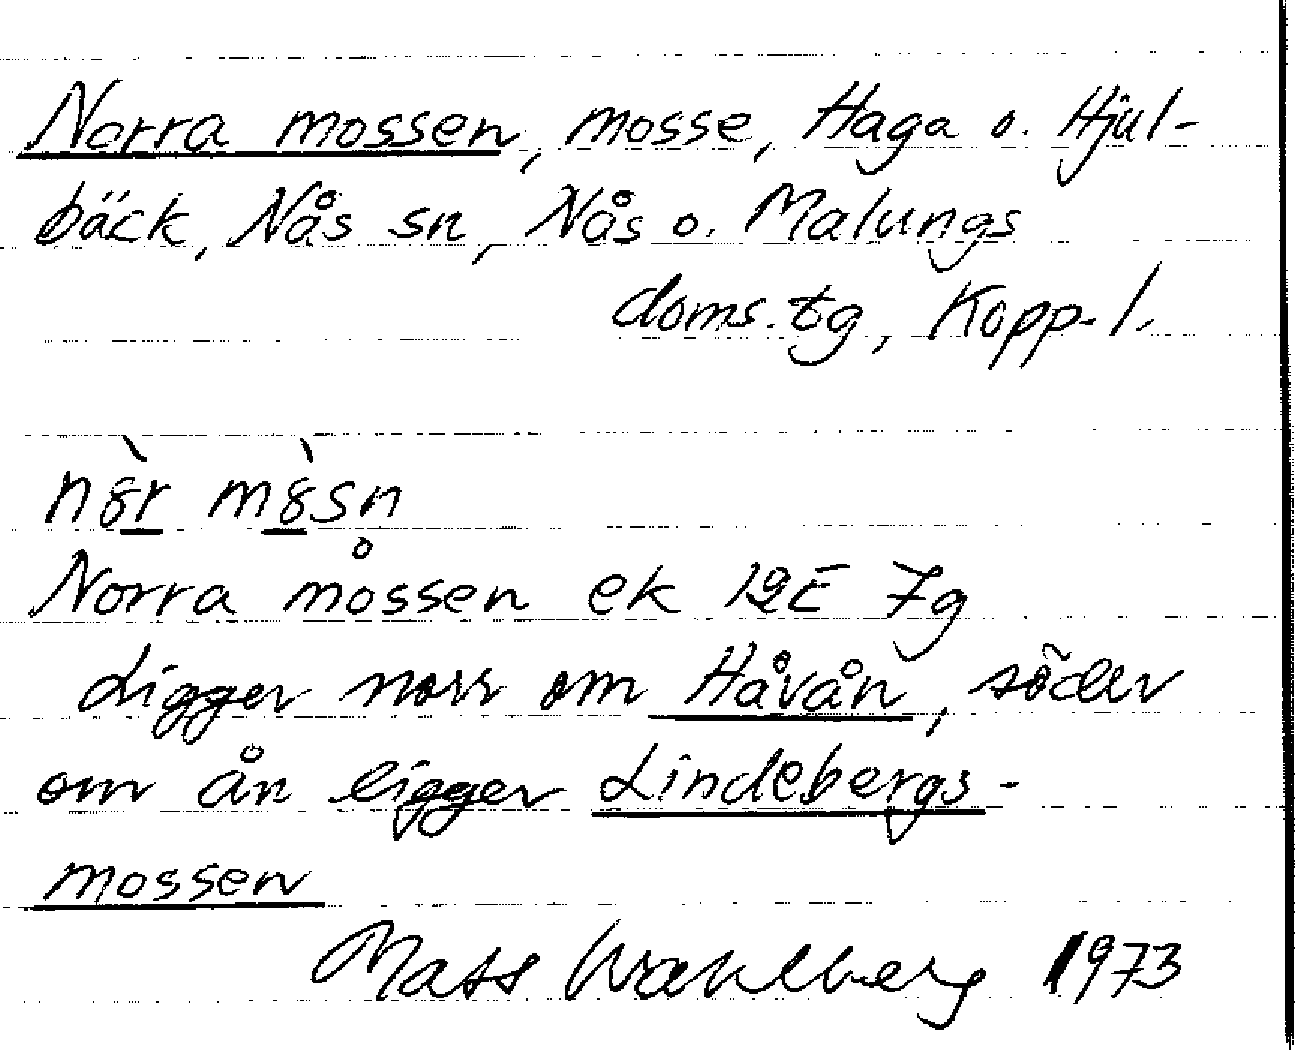 Norra mossen, mosse, Haga o. Hjul-
bäck, Nås sn, Nås o. Malungs
doms.tg, Kopp. l.
nòr mòsn
Norra mossen ek 12E 7g
Ligger norr om Håvån, söder
om ån ligger Lindebergs-
mossen
Mats Wahlberg 1973